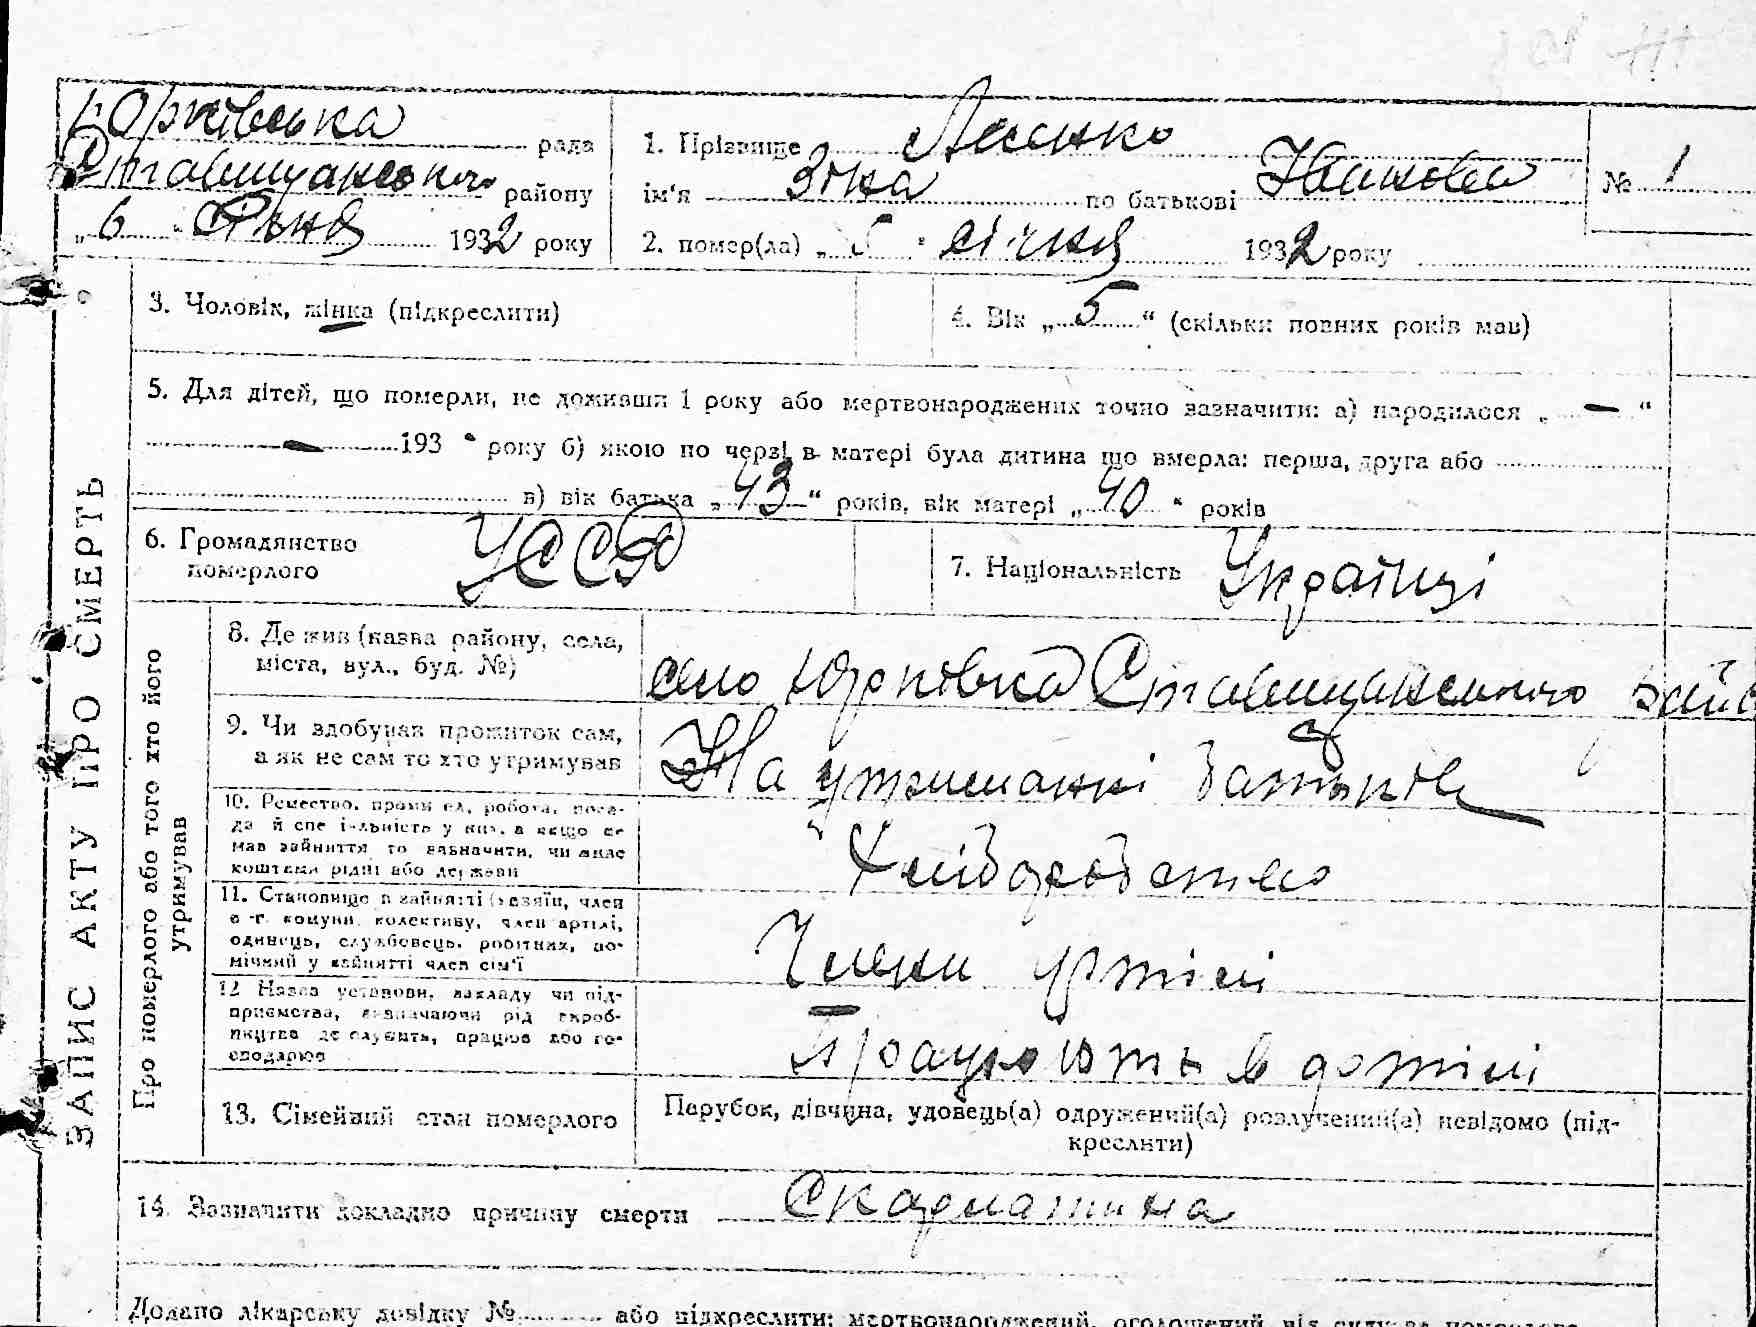 Юрківська рада
Ставищанського району
„ 6 " Січня 1932 року
1. Прізвище
ім'я Зіна по батькові
2. помер(ла) „ 5 " січня 1932 року
№ 1
3. Чоловік, жінка (підкреслити)
4. Вік „ 5 “ (скільки повних років мав)
5. Для дітей, що померли, не доживши 1 року або мертвонароджених точно зазначити: а) народилося „ — “
— 193 року б) якою по черзі в матері була дитина що вмерла: перша, друга або
в) вік батька „ 43 “ років, вік матері „ 40 “ років
6. Громадянство
померлого
УССР
7. Національність Українці
ЗАПИС АКТУ ПРО СМЕРТЬ
Про померлого або того хто його
утримував
8. Де жив (назва району, села,
міста, вул., буд. №)
село Юрківка Ставищанського рай
9. Чи здобував прожиток сам,
а як не сам то хто утримував
На утриманні батьків
10. Ремество, промисел, робота, поса-
да й спеціяльність у них, а якщо не
мав зайняття то зазначити, чи жив
коштами рідні або держави
Хліборобство
11. Становище в зайнятті (хазяїн, член
с-г. комуни, колективу, член артілі,
одинець, службовець, робітник, по-
мічний у зайнятті член сім'ї
Члени артілі
12 Назва установи, закладу чи під-
приємства, зазначаючи рід вироб-
ництва де служить, працює або го-
сподарює
Працюють в артілі
13. Сімейний стан померлого
Парубок, дівчина, удовець(а) одружений(а) розлучений(а) невідомо (під-
креслити)
14. Зазначити докладно причину смерти Скарлатина
Додано лікарську довідку № або підкреслити: мертвонароджений, оголошений